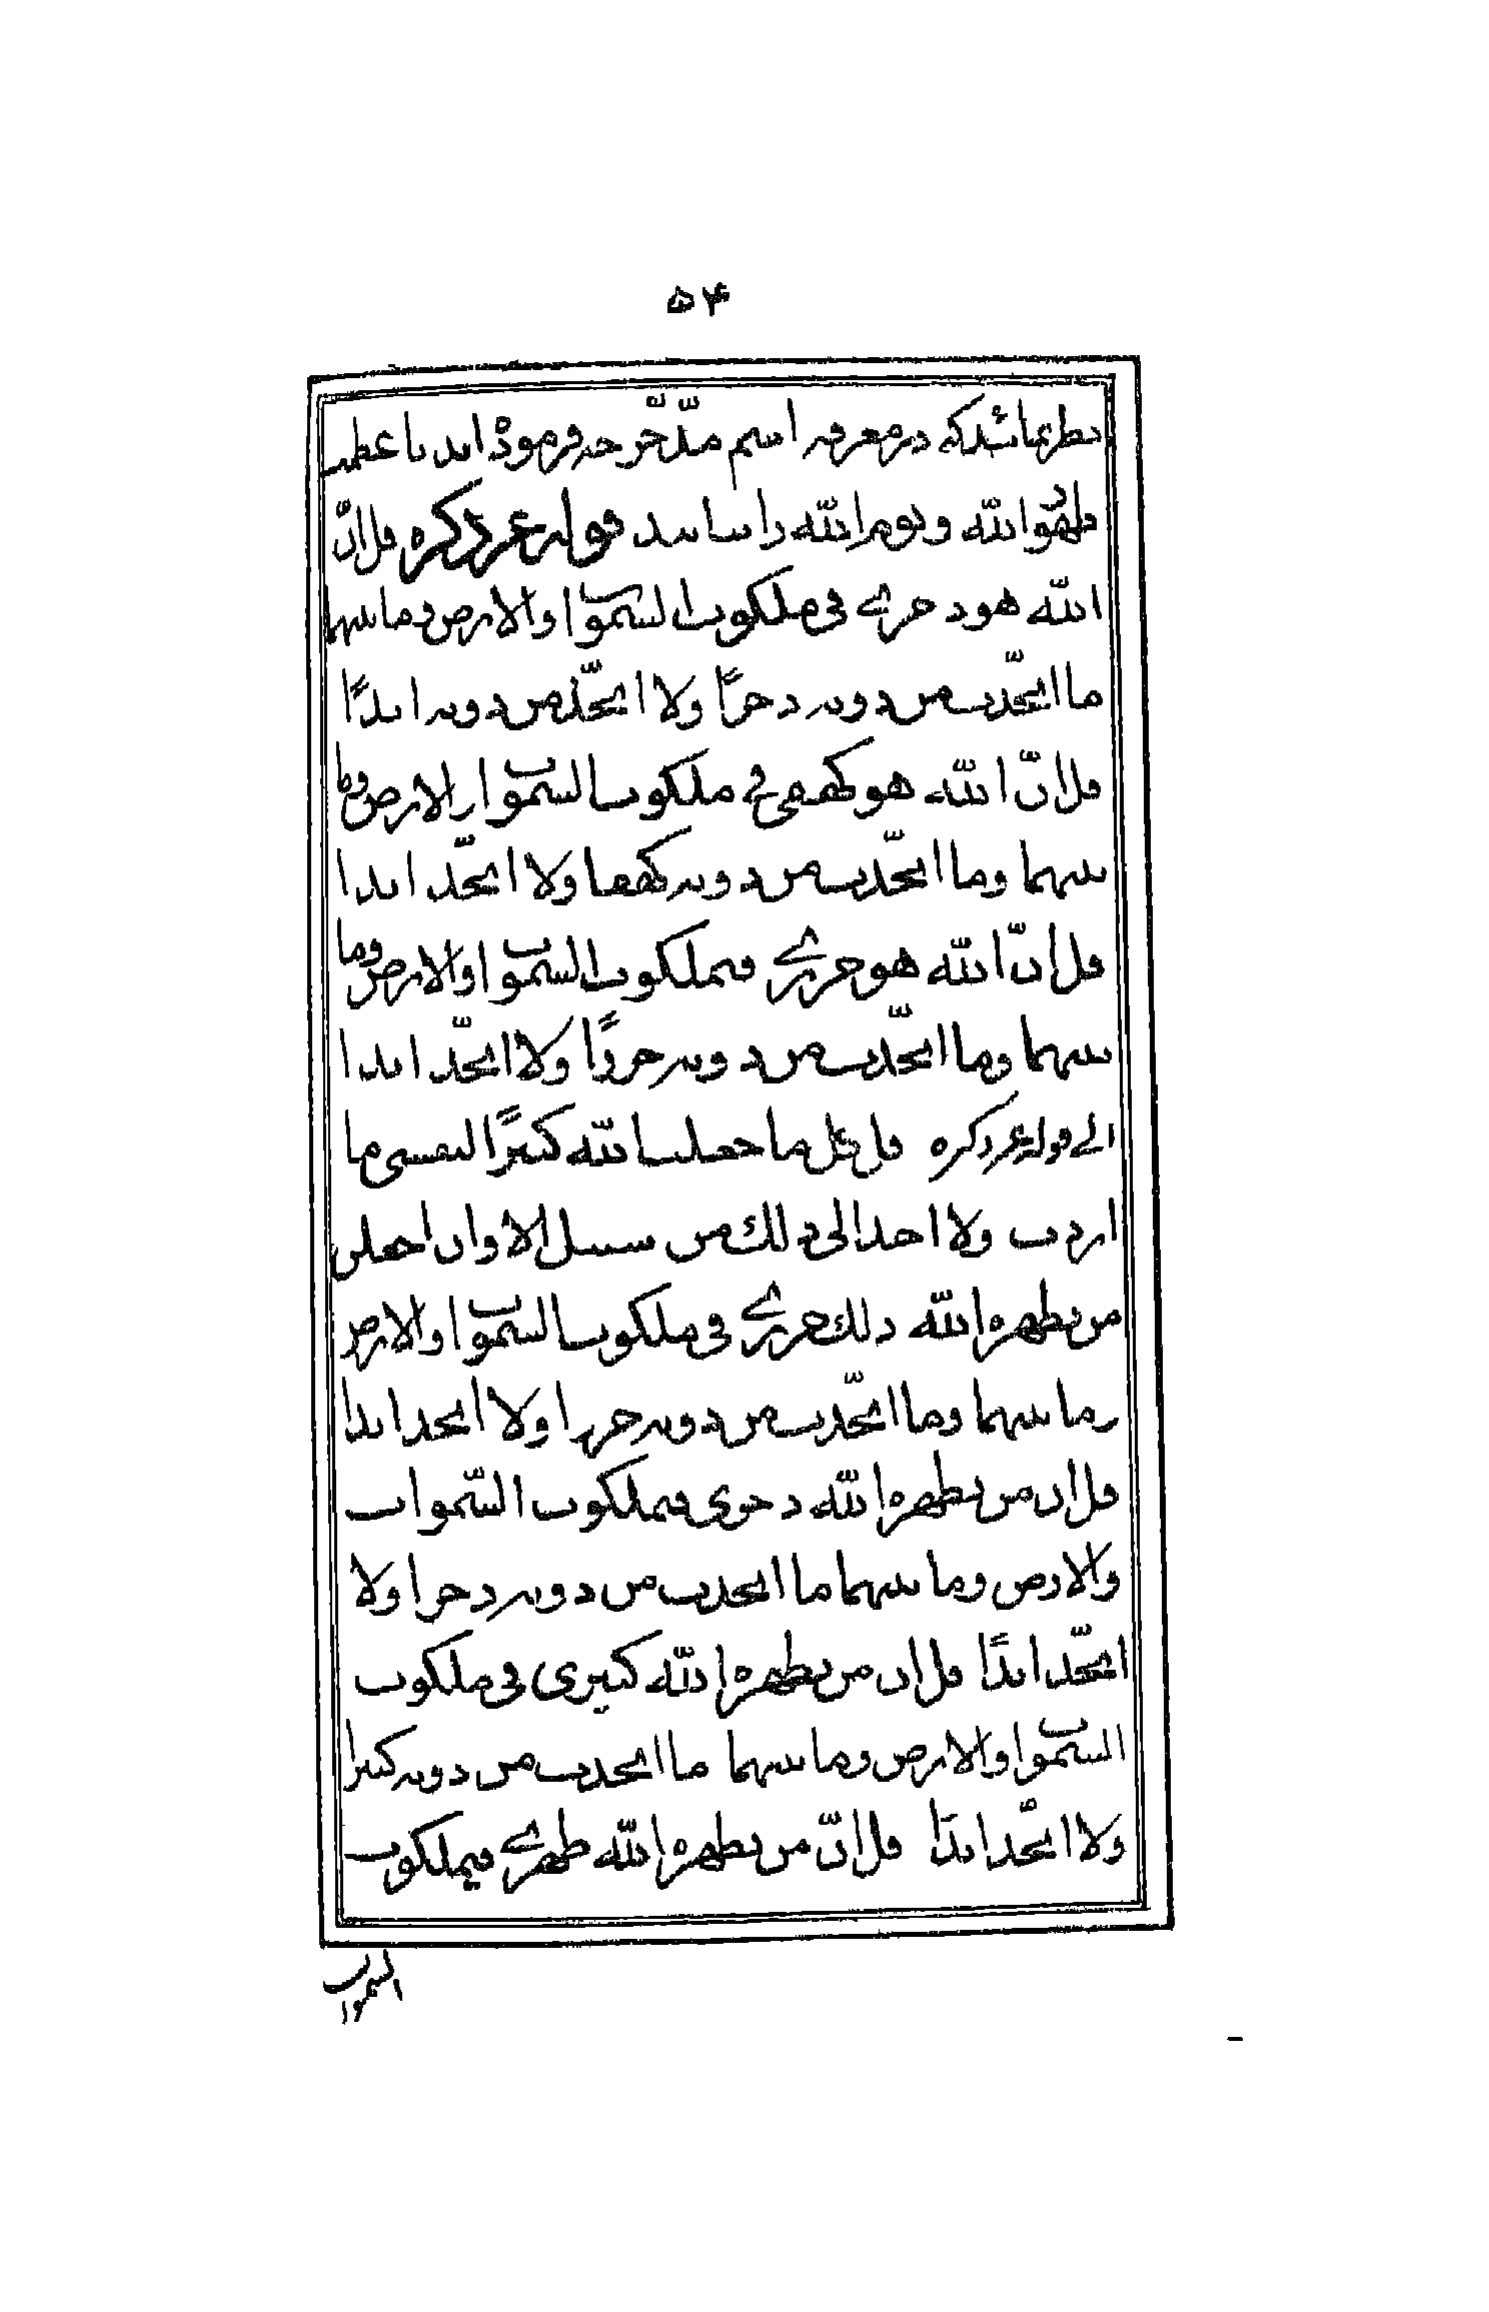 ۵۴
نظر نمائید که در معرفه اسم مدّخّر چه فرموده‌اند تا عظمت
ظهور الله و یوم الله را بیابید قوله عز ذکره قل ان
الله هو ذخری فی ملکوت السّموات والارض وما بینهما
ما اتّخذت من دونه ذخرًا ولا اتّخذ من دونه ابدًا
قل انّ الله هو کهفی فی ملکوت السّموات والارض وما
بینهما وما اتّخذت من دونه کهفا ولا اتّخذ ابدا
قل انّ الله هو حرزی فی ملکوت السّموات والارض وما
بینهما وما اتّخذت من دونه حرزًا ولا اتّخذ ابدا
الی قوله عز ذکره قل کل ما جعلت الله کنزًا لنفسی ما
اردت ولا احد الی ذلک من سبیل الا وان اجعلن
من یظهره الله ذلک حرزی فی ملکوت السّموات والارض
وما بینهما وما اتّخذت من دونه حرزا ولا اتخذ ابدا
قل ان من یظهره الله ذخری فی ملکوت السّموات
والارض وما بینهما ما اتخذت من دونه ذخرا ولا
اتّخذ ابدًا قل ان من یظهره الله کنزی فی ملکوت
السّموات والارض وما بینهما ما اتخذت من دونه کنزا
ولا اتّخذ ابدًا قل انّ من یظهره الله ظهری فی ملکوت
السموات